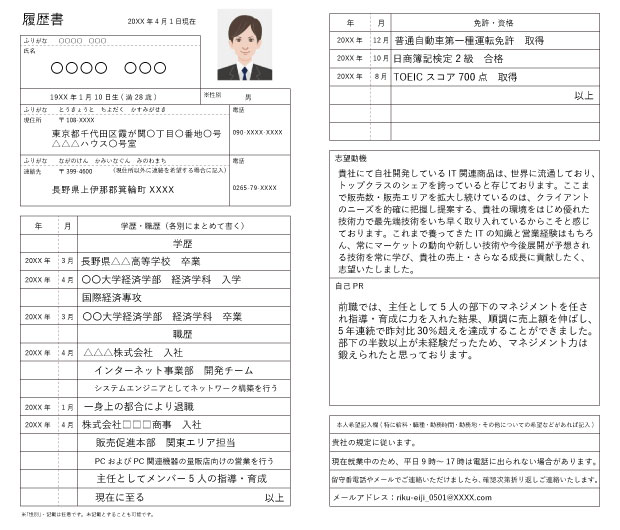 履歴書
20XX 年 4 月 1 日現在
ふりがな 〇〇〇〇 〇〇〇
氏名
〇〇〇〇 〇〇〇
19XX 年 1 月 10 日生 ( 満 28 歳 )
※性別 男
ふりがな とうきょうと ちよだく かすみがせき
電話
現住所 〒108-XXXX
東京都千代田区霞が関〇丁目〇番地〇号
△△△ハウス〇号室
090-XXXX-XXXX
ふりがな ながのけん かみいなぐん みのわまち
電話
連絡先 〒399-4600 (現住所以外に連絡を希望する場合に記入)
長野県上伊那郡箕輪町 XXXX
0265-79-XXXX
年 月 学歴・職歴（各別にまとめて書く）
学歴
20XX 年 3 月 長野県△△高等学校 卒業
20XX 年 4 月 〇〇大学経済学部 経済学科 入学
国際経済専攻
20XX 年 3 月 〇〇大学経済学部 経済学科 卒業
職歴
20XX 年 4 月 △△△株式会社 入社
インターネット事業部 開発チーム
システムエンジニアとしてネットワーク構築を行う
20XX 年 1 月 一身上の都合により退職
20XX 年 4 月 株式会社□□□商事 入社
販売促進本部 関東エリア担当
PC および PC 関連機器の量販店向けの営業を行う
主任としてメンバー 5 人の指導・育成
現在に至る 以上
※「性別」・記載は任意です。未記載とすることも可能です。
年 月 免許・資格
20XX 年 12 月 普通自動車第一種運転免許 取得
20XX 年 10 月 日商簿記検定 2 級 合格
20XX 年 8 月 TOEIC スコア 700 点 取得
以上
志望動機
貴社にて自社開発している IT 関連商品は、世界に流通しており、
トップクラスのシェアを誇っていると存じております。ここま
で販売数・販売エリアを拡大し続けているのは、クライアント
のニーズを的確に把握し提案する、貴社の環境をはじめ優れた
技術力で最先端技術をいち早く取り入れているからこそと感じ
ております。これまで養ってきた IT の知識と営業経験はもちろ
ん、常にマーケットの動向や新しい技術や今後展開が予想され
る技術を常に学び、貴社の売上・さらなる成長に貢献したく、
志望いたしました。
自己 PR
前職では、主任として 5 人の部下のマネジメントを任さ
れ指導・育成に力を入れた結果、順調に売上額を伸ばし、
5 年連続で昨対比 30％超えを達成することができました。
部下の半数以上が未経験だったため、マネジメント力は
鍛えられたと思っております。
本人希望記入欄 ( 特に給料・職種・勤務時間・勤務地・その他についての希望などがあれば記入 )
貴社の規定に従います。
現在就業中のため、平日 9 時〜 17 時は電話に出られない場合があります。
留守番電話やメールでご連絡いただけましたら、確認次第折り返しご連絡いたします。
メールアドレス：riku-eiji_0501@XXXX.com